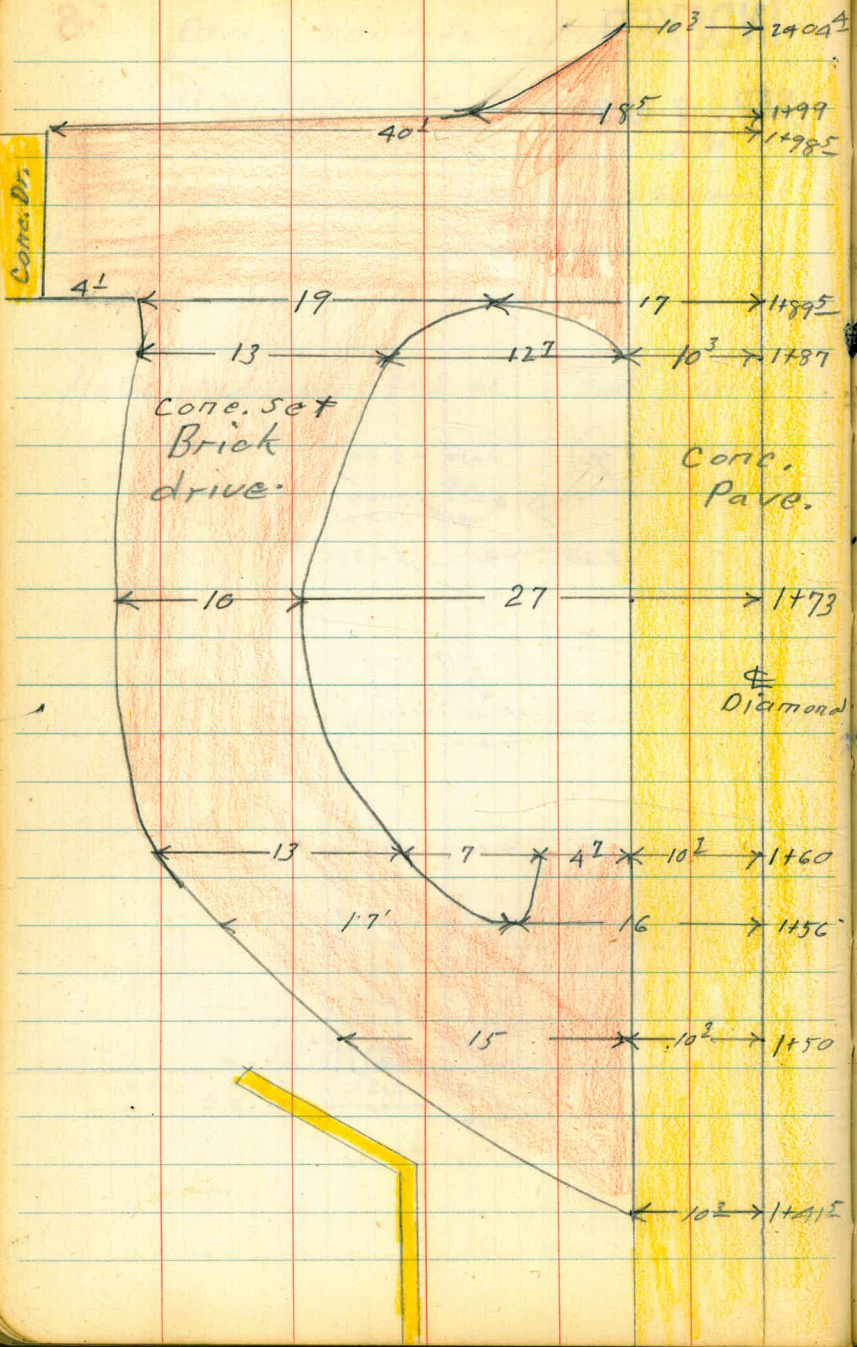 10³ 2+04⁴
18⁵ 1+99
40¹ 1+98⁵
Conc. Dr.
4¹ 19 17 1+89⁵
13 12⁷ 10³ 1+87
Conc. set
Brick
drive.
Conc.
Pave.
10 27 1+73
℄
Diamond
13 7 4⁷ 10³ 1+60
17' 16 1+56
15 10³ 1+50
10³ 1+41⁵